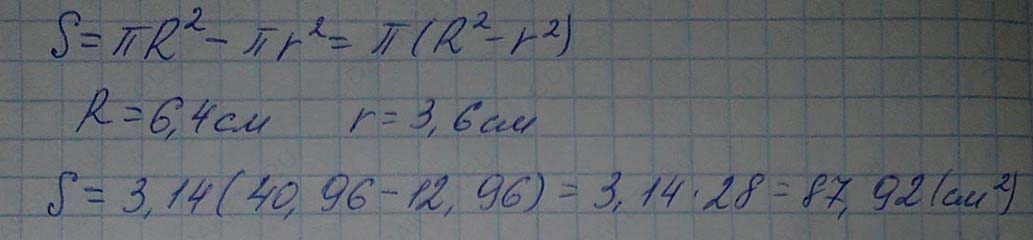 S = πR² - πr² = π(R² - r²)
R = 6,4 см r = 3,6 см
S = 3,14(40,96 - 12,96) = 3,14 · 28 = 87,92 (см²)